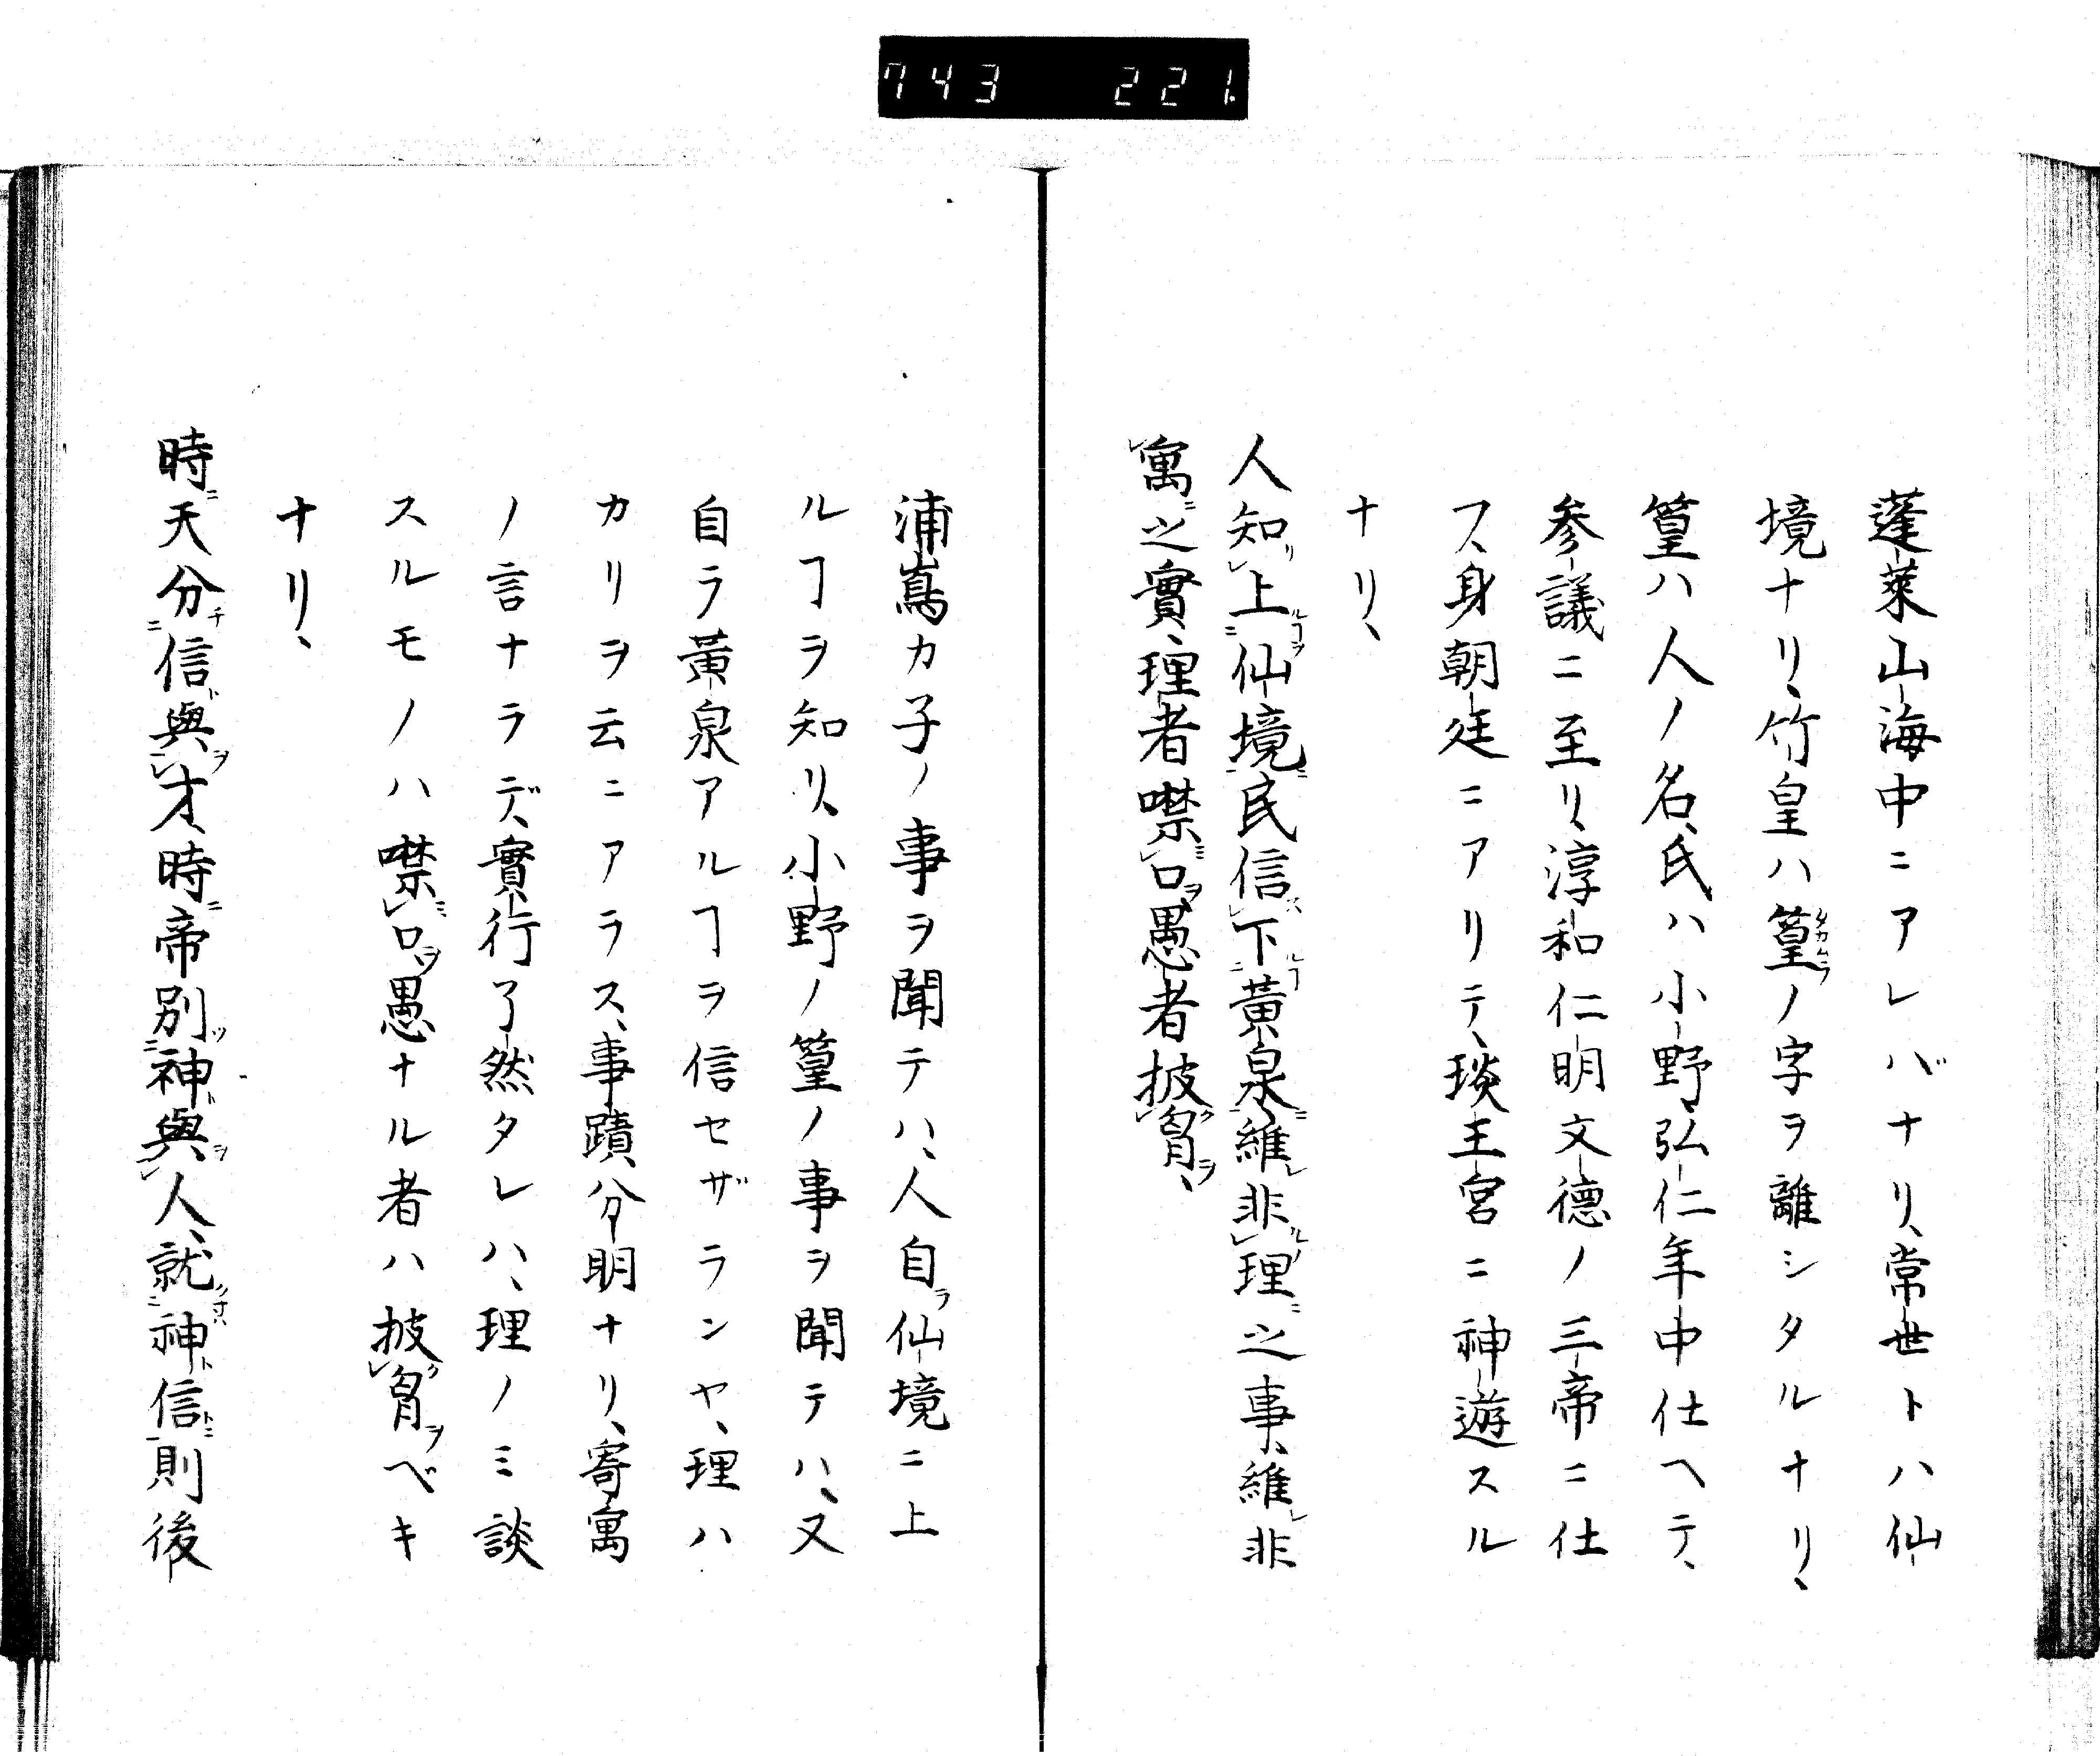 743 221.
蓬萊山海中ニアレバナリ、常世トハ仙
境ナリ、竹皇ハ篁ノ字ヲ離シタルナリ、
篁ハ人ノ名、氏ハ小野弘仁年中仕ヘテ、
参議ニ至リ、淳和仁明文德ノ三帝ニ仕
フ、身朝廷ニアリテ、琰王宮ニ神遊スル
ナリ、
人知上仙境民信下黃泉維非理之事、維非
寓之實、理者噤口、愚者披胷、
浦嶌カ子ノ事ヲ聞テハ、人自ラ仙境ニ上
ルヿヲ知リ、小野ノ篁ノ事ヲ聞テハ、又
自ラ黃泉アルヿヲ信セザランヤ、理ハ
カリヲ云ニアラス、事蹟分明ナリ、寄寓
ノ言ナラデ、實行了然タレハ、理ノミ談
スルモノハ噤口ヲ愚ナル者ハ披胷ヲベキ
ナリ、
時天分信與才、時帝別神與人、就神信則後